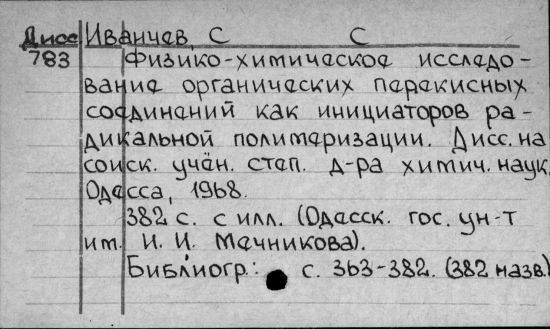 Дисс. Иванчев, С С
783 Физико-химическое исследо-
вание органических перекисных
соединений как инициаторов ра-
дикальной полимеризации. Дисс. на
соиск. учён. степ. д-ра химич. наук.
Одесса, 1968.
382 с. с илл. (Одесск. гос. ун-т
им. И. И. Мечникова).
Библиогр.: с. 363-382. (382 назв.)